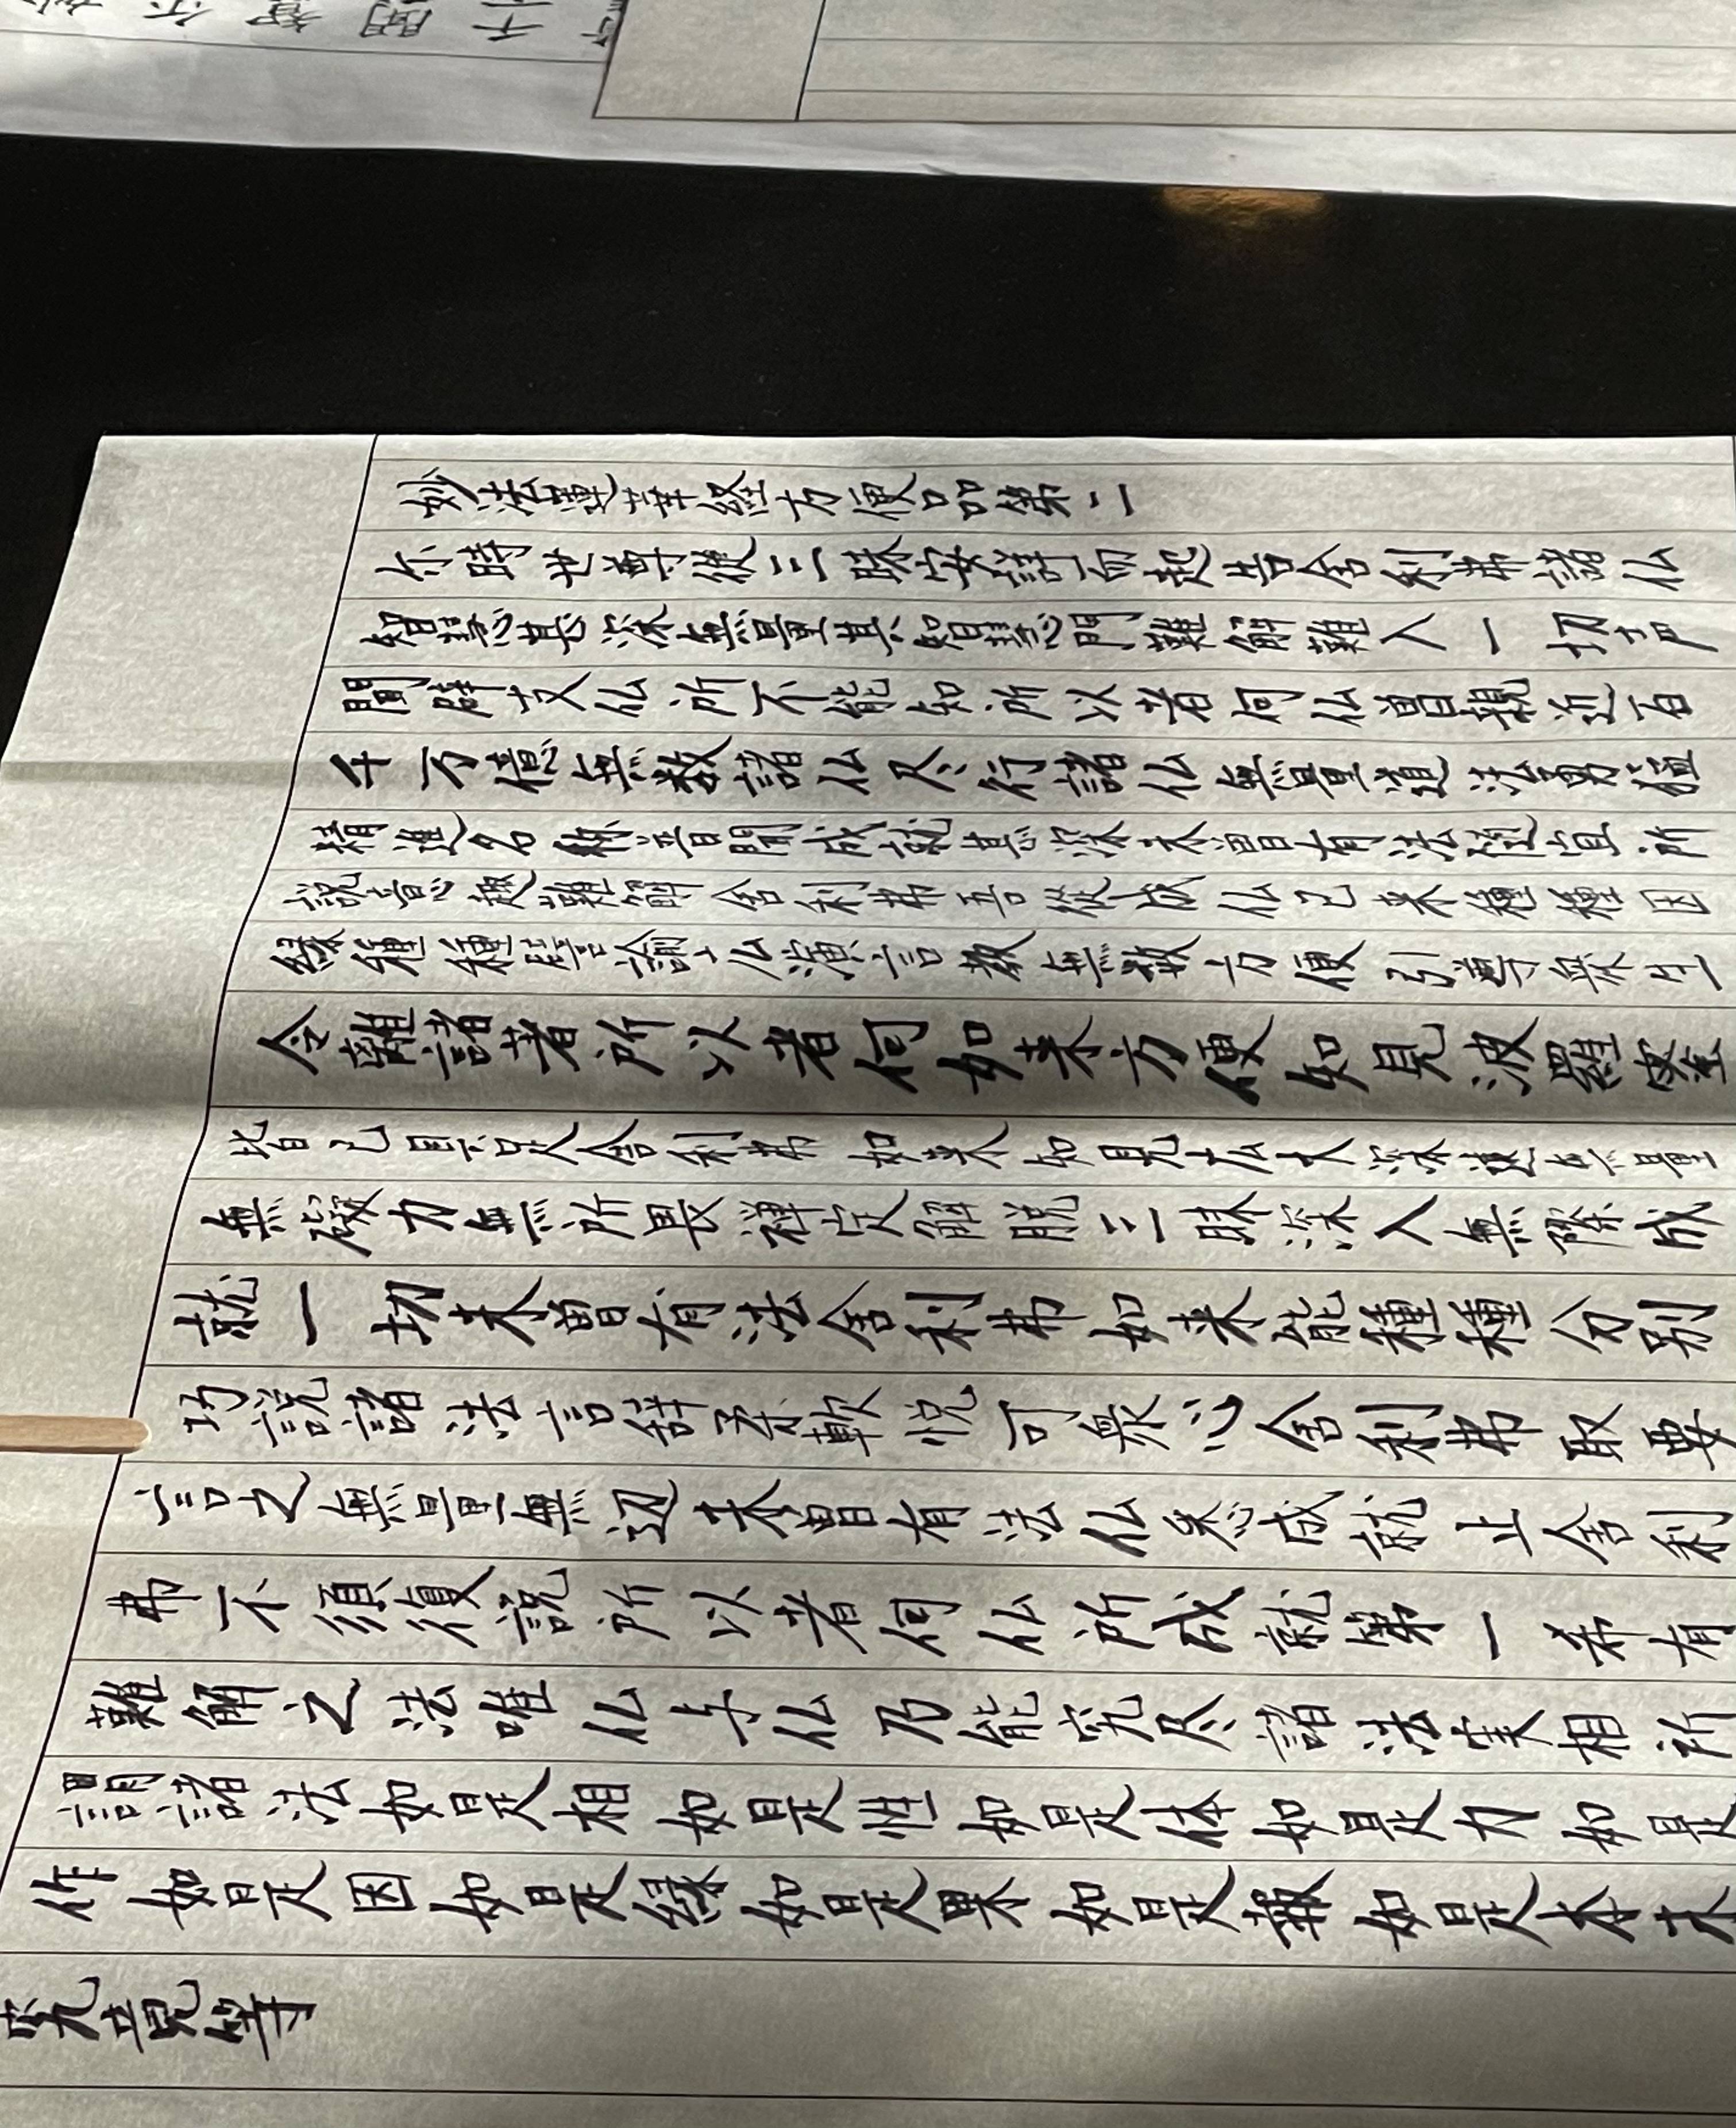 妙法蓮華経方便品第二
尓時世尊従三昧安詳而起告舎利弗諸仏
智慧甚深無量其智慧門難解難入一切声
聞辟支仏所不能知所以者何仏曽親近百
千万億無数諸仏尽行諸仏無量道法勇猛
精進名称普聞成就甚深未曽有法随宜所
説意趣難解舎利弗吾従成仏已来種種因
縁種種譬諭広演言教無数方便引導衆生
令離諸著所以者何如来方便知見波羅蜜
皆已具足舎利弗如来知見広大深遠無量
無礙力無所畏禅定解脱三昧深入無際成
就一切未曽有法舎利弗如来能種種分別
巧説諸法言辞柔軟悦可衆心舎利弗取要
言之無量無辺未曽有法仏悉成就止舎利
弗不須復説所以者何仏所成就第一希有
難解之法唯仏与仏乃能究尽諸法実相所
謂諸法如是相如是性如是体如是力如是
作如是因如是縁如是果如是報如是本末
究竟等